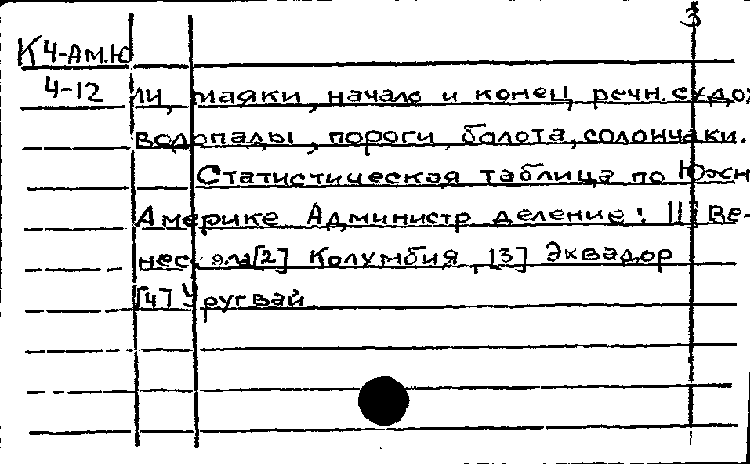 3
К4-Ам.Ю
4-12 ли, маяки, начало и конец речн. судо
водопады, пороги, болота, солончаки.
Статистическая таблица по Южн
Америке Администр деление: [1] Ве-
несуэла [2] Колумбия, [3] Эквадор
[4] Уругвай